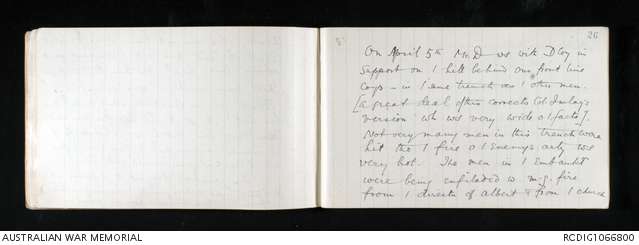 26
On April 5th Mr. D was with D Coy in
Support on / hill behind our front line
Coys – in / same trench as / other men.
[a great deal of this corrects Col Imlay's
version wh was very wide o / facts].
Not very many men in this trench were
hit tho / fire o / Enemys arty was
very hot. The men in / Embankt
were being enfiladed w m.g. fire
from / directn of Albert & from / church
AUSTRALIAN WAR MEMORIAL
RCDIG1066800